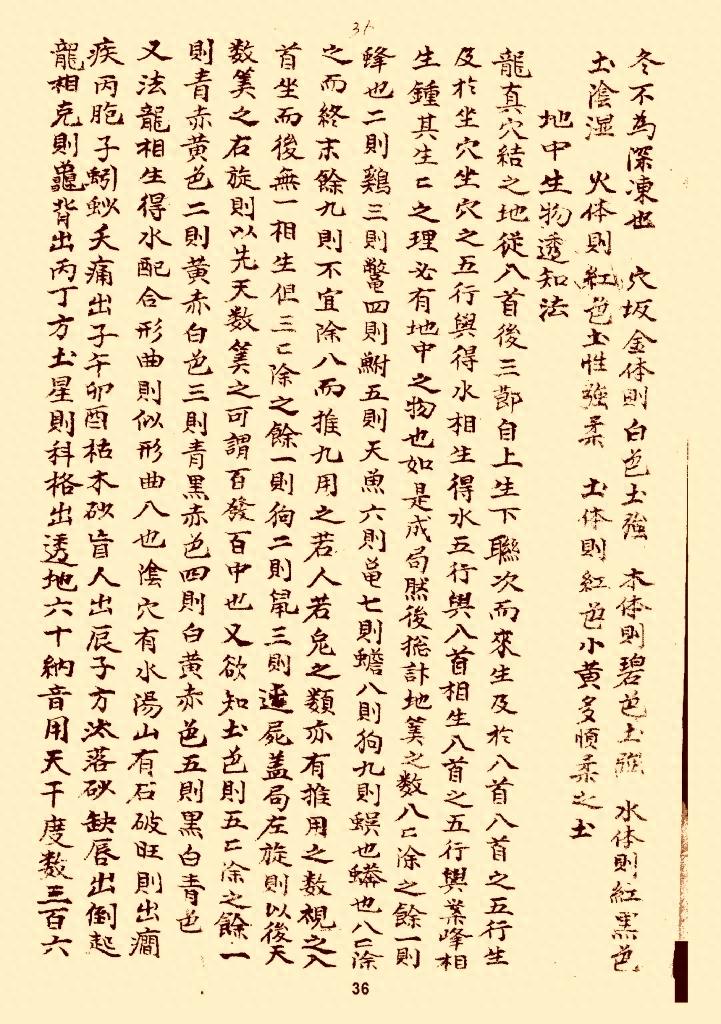 31
冬不為深凍也 穴坂金体則白色土強 木体則碧色土强 水体則紅黑色
土陰湿 火体則紅色土性强柔 土体則紅色小黃多順柔之土
地中生物透知法
龍真穴結之地從八首後三節自上生下聯次而來生及於八首八首之五行生
及於坐穴坐穴之五行與得水相生得水五行與八首相生八首之五行與業峰相
生鍾其生〻之理必有地中之物也如是成局然後捴計地筭之数八〻除之餘一則
蜂也二則鷄三則鱉四則鮒五則天魚六則黽七則蟾八則狗九則蜈也蟒也八〻除
之而終末餘九則不宜除八而推九用之若人若兔之類亦有推用之数視之入
首坐而後無一相生但三〻除之餘一則狗二則鼠三則逆屍盖局左旋則以後天
数筭之右旋則以先天数筭之可謂百發百中也又欲知土色則五〻除之餘一
則青赤黃色二則黃赤白色三則青黑赤色四則白黃赤色五則黑白青色
又法龍相生得水配合形曲則似形曲八也陰穴有水湯山有石破旺則出癎
疾丙胞子蚓虯夭痛出子午卯酉枯木砂盲人出辰子方汰落砂缺唇出倒起
龍相克則龜背出丙丁方土星則科格出透地六十納音用天干度数三百六
36